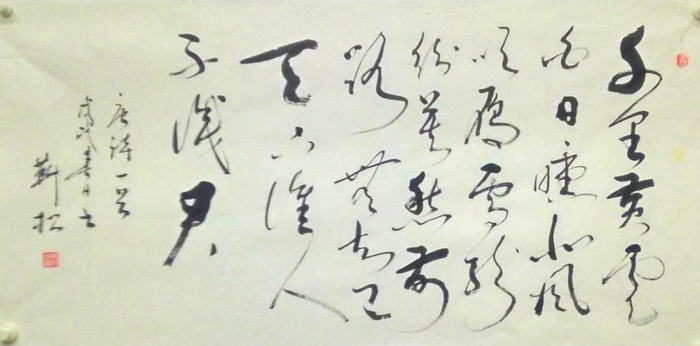 千里黄云
白日曛北风
吹雁雪纷
纷莫愁前
路无知己
天下谁人
不识君
唐诗一首
戊戌春日书
靳松